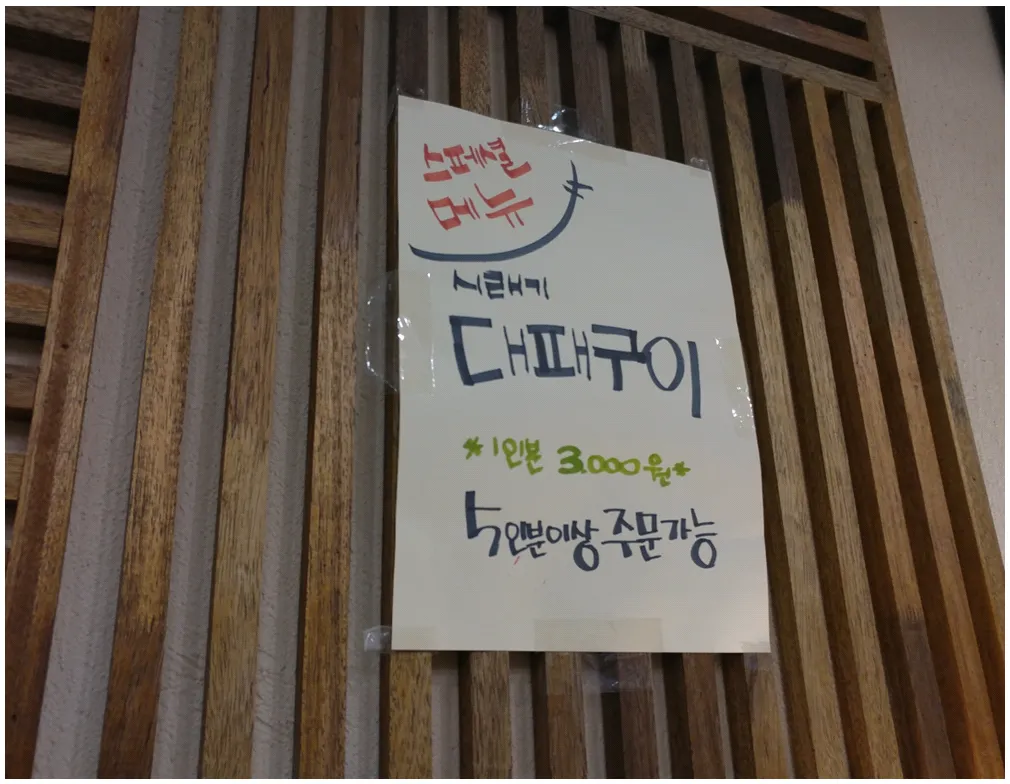 스페셜
메뉴
시래기
대패구이
*1인분 3.000원*
5인분이상 주문가능